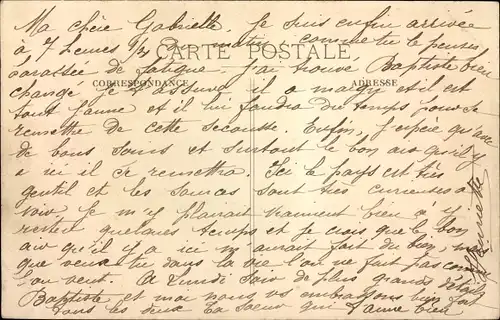 Ma chère Gabrielle, Je suis enfin arrivée
à 7 heures 1/2 du matin comme tu le penses
CARTE POSTALE
harassée de fatigue. J'ai trouvé Baptiste bien
CORRESPONDANCE
ADRESSE
changé il a maigri et il est
tout jaune et il lui faudra du temps pour se
remettre de cette secousse. Enfin, j'espère qu'avec
de bons soins et surtout le bon air qu'il y
a ici il se remettra. Ici le pays est très
gentil et les sources sont très curieuses à
voir je m'y plairait vraiment bien à y
rester quelques temps et je crois que le bon
air qu'il y a ici m'aurait fait du bien, mais
que veux tu dans la vie l'on ne fait pas comme
l'on veut. A Lundi soir de plus grands détails
Baptiste et moi nous vous embrassons bien fort
tous les deux Ta sœur qui t'aime bien